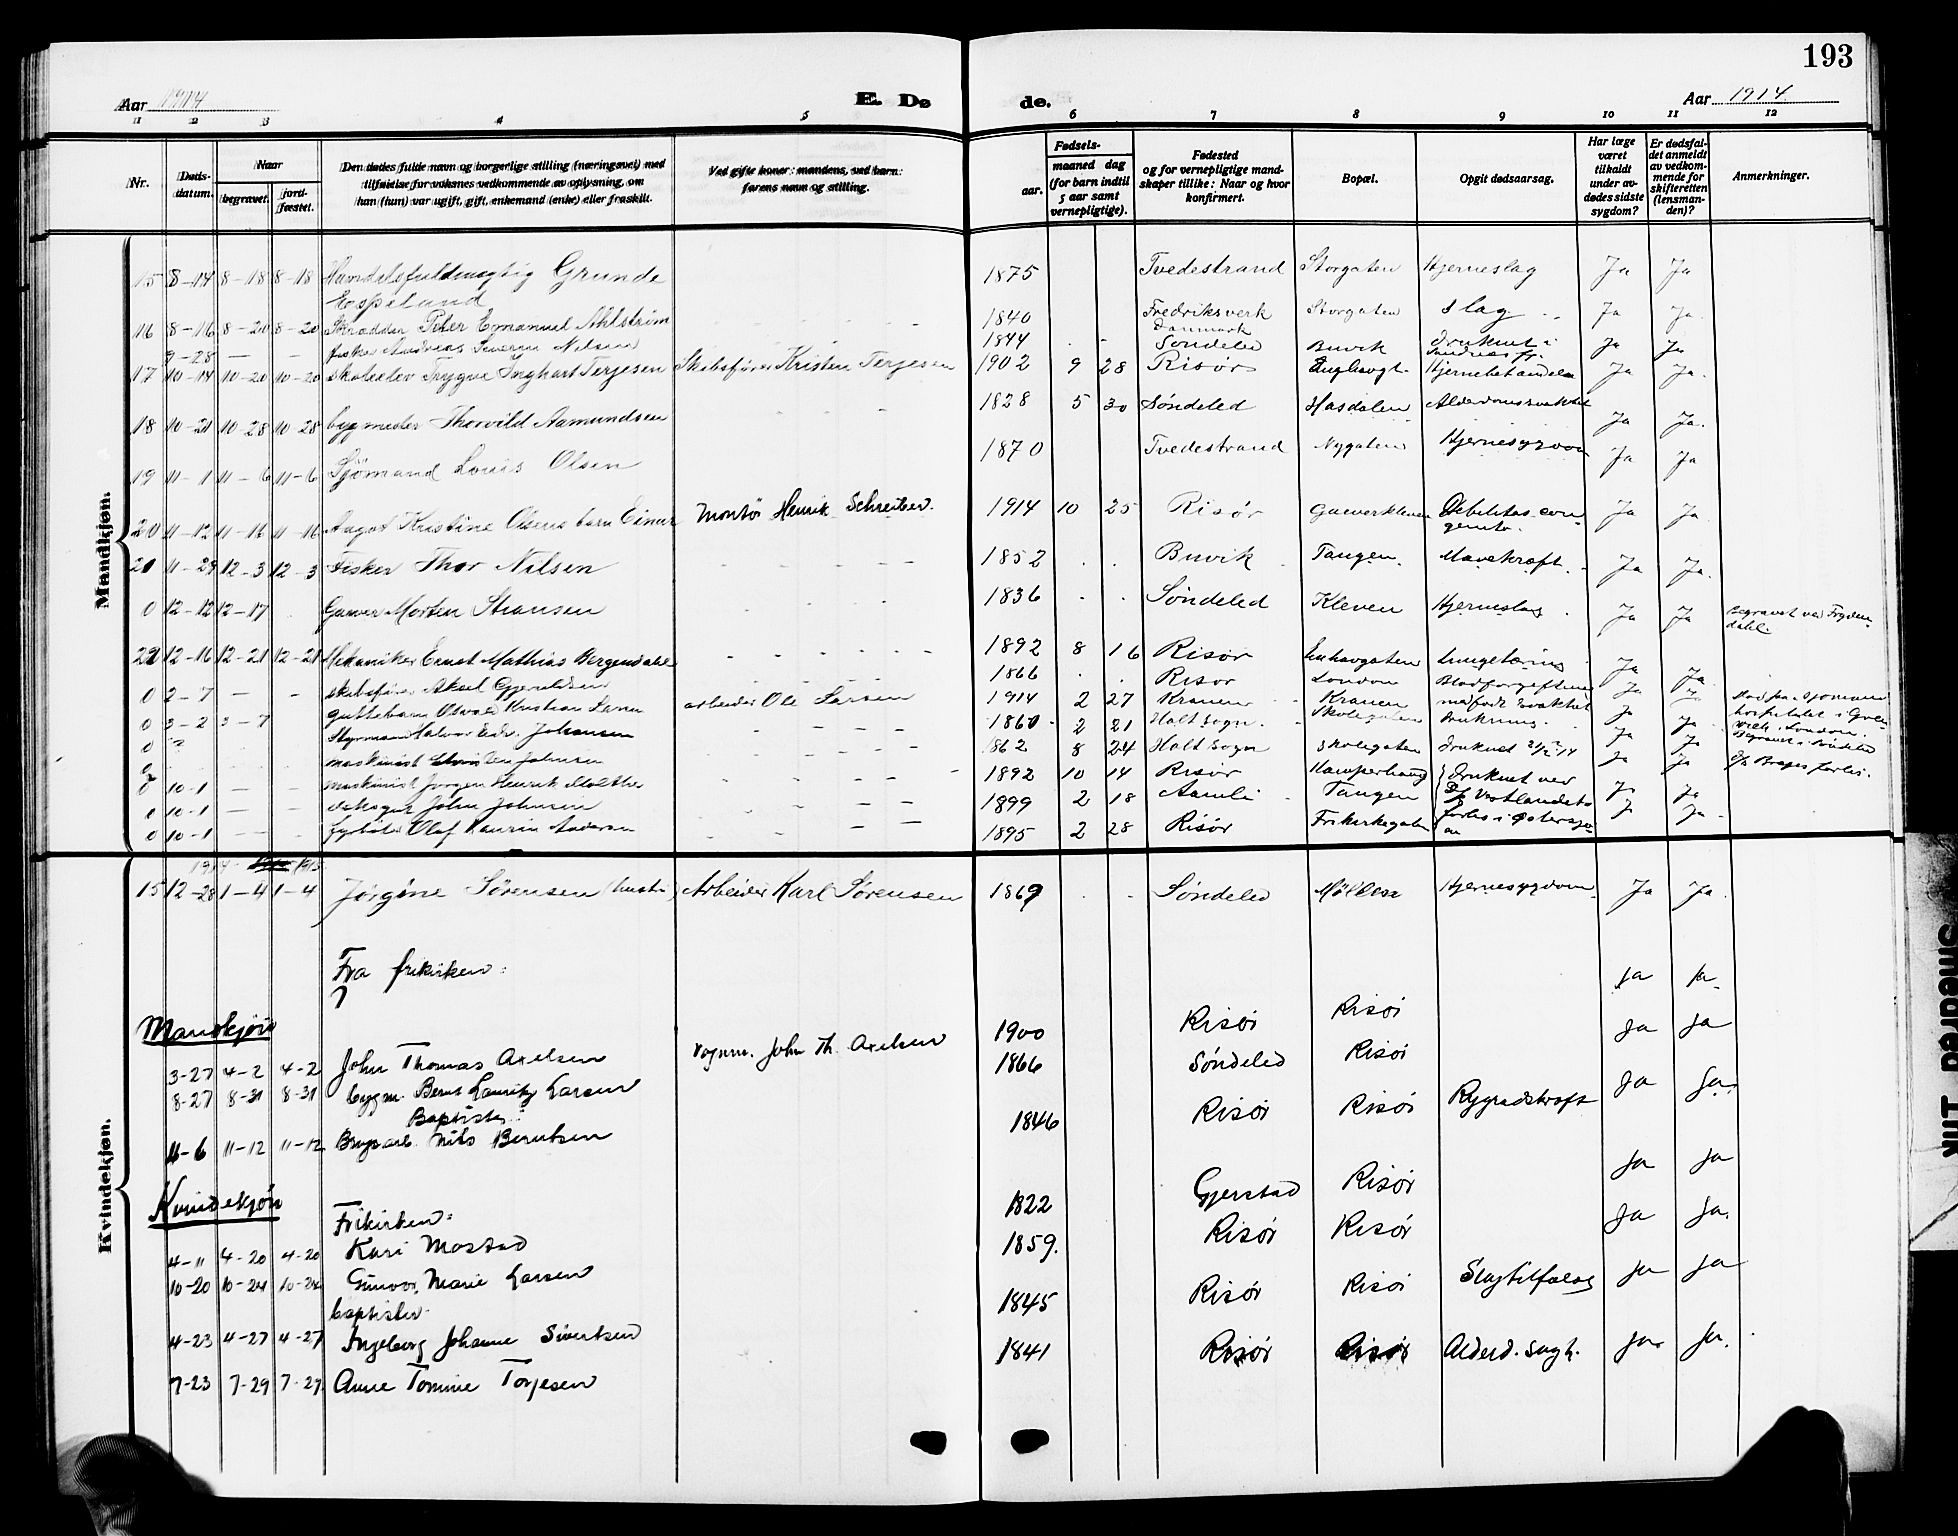 193
Aar 1914
E. Dø
de.
Aar 1914.
1 2 3 4 5 6 7 8 9 10 11 12
Nr.
Døds-
datum.
Naar
begravet.
jord-
fæstet.
Den dødes fulde navn og borgerlige stilling (næringsvei) med
tilføielse for voksnes vedkommende av oplysning, om
han (hun) var ugift, gift, enkemand (enke) eller fraskilt.
Ved gifte koner: mandens, ved barn:
farens navn og stilling.
Fødsels-
aar.
maaned dag
(for barn indtil
5 aar samt
vernepligtige).
Fødested
og for vernepligtige mand-
skaper tillike: Naar og hvor
konfirmert.
Bopæl.
Opgit dødsaarsag.
Har læge
været
tilkaldt
under av-
dødes sidste
sygdom?
Er dødsfal-
det anmeldt
av vedkom-
mende for
skifteretten
(lensman-
den)?
Anmerkninger.
Mandkjøn.
15 8-14 8-18 8-18 Handelsfuldmægtig Grunde Espeland 1875 Tvedestrand Storgaten Hjerneslag Ja Ja
16 8-16 8-20 8-20 Skrædder Peter Emanuel Ahlström 1840 Fredriksverk Danmark Storgaten Slag Ja Ja
9-28 — fisker Andreas Severin Nilsen 1844 Søndeled Buvik druknet i Ja Ja
17 10-14 10-20 10-20 skoleelev Trygve Inghart Terjesen Skibsfører Kristen Terjesen 1902 9 28 Risør Hjernebetændelse Ja Ja.
18 10-21 10-28 10-28 bygmester Thorvild Aamundsen 1828 5 30 Søndeled Hasdalen Alderdomssvakhet Ja Ja.
19 11-1 11-6 11-6 Sjömand Louis Olsen 1870 Tvedestrand Nygaten Hjernesygdom Ja Ja
20 11-12 11-16 11-16 Aagot Kristine Olsens barn Einar Montør Henrik Schreiber. 1914 10 25 Risør Garverkleven Debilitas con-
genita. Ja Ja
21 11-29 12-3 12-3 Fisker Thor Nilsen 1852 Buvik Tangen. Mavekræft. Ja Ja.
0 12-12 12-17 Garver Morten Stransen 1836 Søndeled Kleven Hjerneslag Ja Ja begravet ved Fryden-
dahl.
22 12-16 12-21 12-21 Mekaniker Ernst Mathias Bergendahl 1892 8 16 Risør Lungetæring Ja Ja.
0 2-7 — skibsfører Aksel Gjeruldsen 1866 Risør London Blodforgiftning Ja Ja Død paa sjømans
hospitalet i Green
wich, London.
0 3-2 3-7 guttebarn Osvald Kristian Larsen arbeider Ole Larsen 1914 2 27 Kranen Kranen medfødt svakhet Ja Ja Begravet i Søndeled
0 ? Styrmand Halvor Edv. Johansen 1860 2 21 Holt sogn. Skolegaten Drukning Ja Ja
0 maskinist Johnsen 1862 8 24 Holt sogn Skolegaten druknet Ja Ja D/s Brages forlis.
0 10-1 — maskinist Jørgen Henrik Molthe 1892 10 14 Risør Kamperhaug druknet ved Ja Ja
0 10-1 — dæksgut John Johnsen 1899 2 18 Aamli Tangen D/s Vestlandets Ja Ja
0 10-1 — fyrbøter Olaf Laurin Andersen 1895 2 28 Risør Frikirkegaten forlis i Østersjø-
en
Kvindekjøn.
1914 1915
15 12-28 1-4 1-4 Jørgine Sørensen (hustru) Arbeider Karl Sørensen 1869 Søndeled Hjernesygdom Ja Ja.
Fra frikirken: Ja Ja.
?
Mandkjøn
3-27 4-2 4-2 John Thomas Axelsen vognm. John Th. Axelsen 1900 Risør Risør Ja Ja
8-27 8-31 8-31 bygm. Bernt Lauritz Larsen 1866 Søndeled Risør Ja Ja.
Baptister:
11-6 11-12 11-12 Brygarb. Nils Berntsen 1846 Risør Risør Rygradskræft
Kvindekjøn
Frikirken:
4-11 4-20 4-20 Kari Mostad 1822 Gjerstad Risør Ja Ja
10-20 10-24 10-24 Gunvor Marie Larsen 1859. Risør Risør Ja Ja.
baptister
4-23 4-27 4-27 Ingeborg Johanne Sivertsen 1845 Risør Risør Slagtilfælde Ja Ja
7-23 7-29 7-29 Anne Tomine Torjesen 1841 Risør Risør Alderd. svagh. Ja Ja.